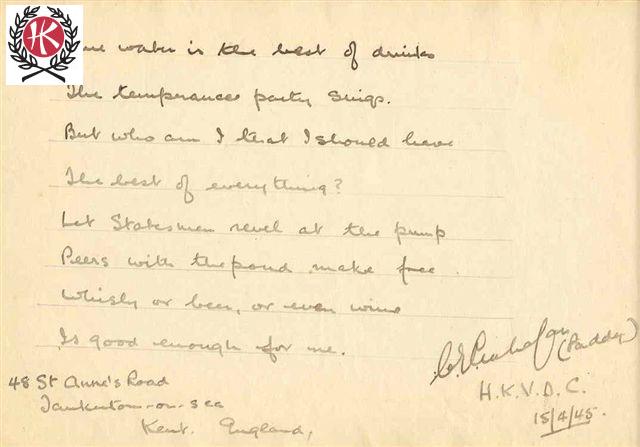 HK
water is the best of drinks
The temperance party sings.
But who am I that I should have
The best of everything?
Let Statesmen revel at the pump
Peers with the pond make free
Whisky or beer, or even wine
Is good enough for me.
(Paddy)
H.K.V.D.C.
15/4/45.
48 St Anne's Road
Tankerton-on-sea
Kent. England,